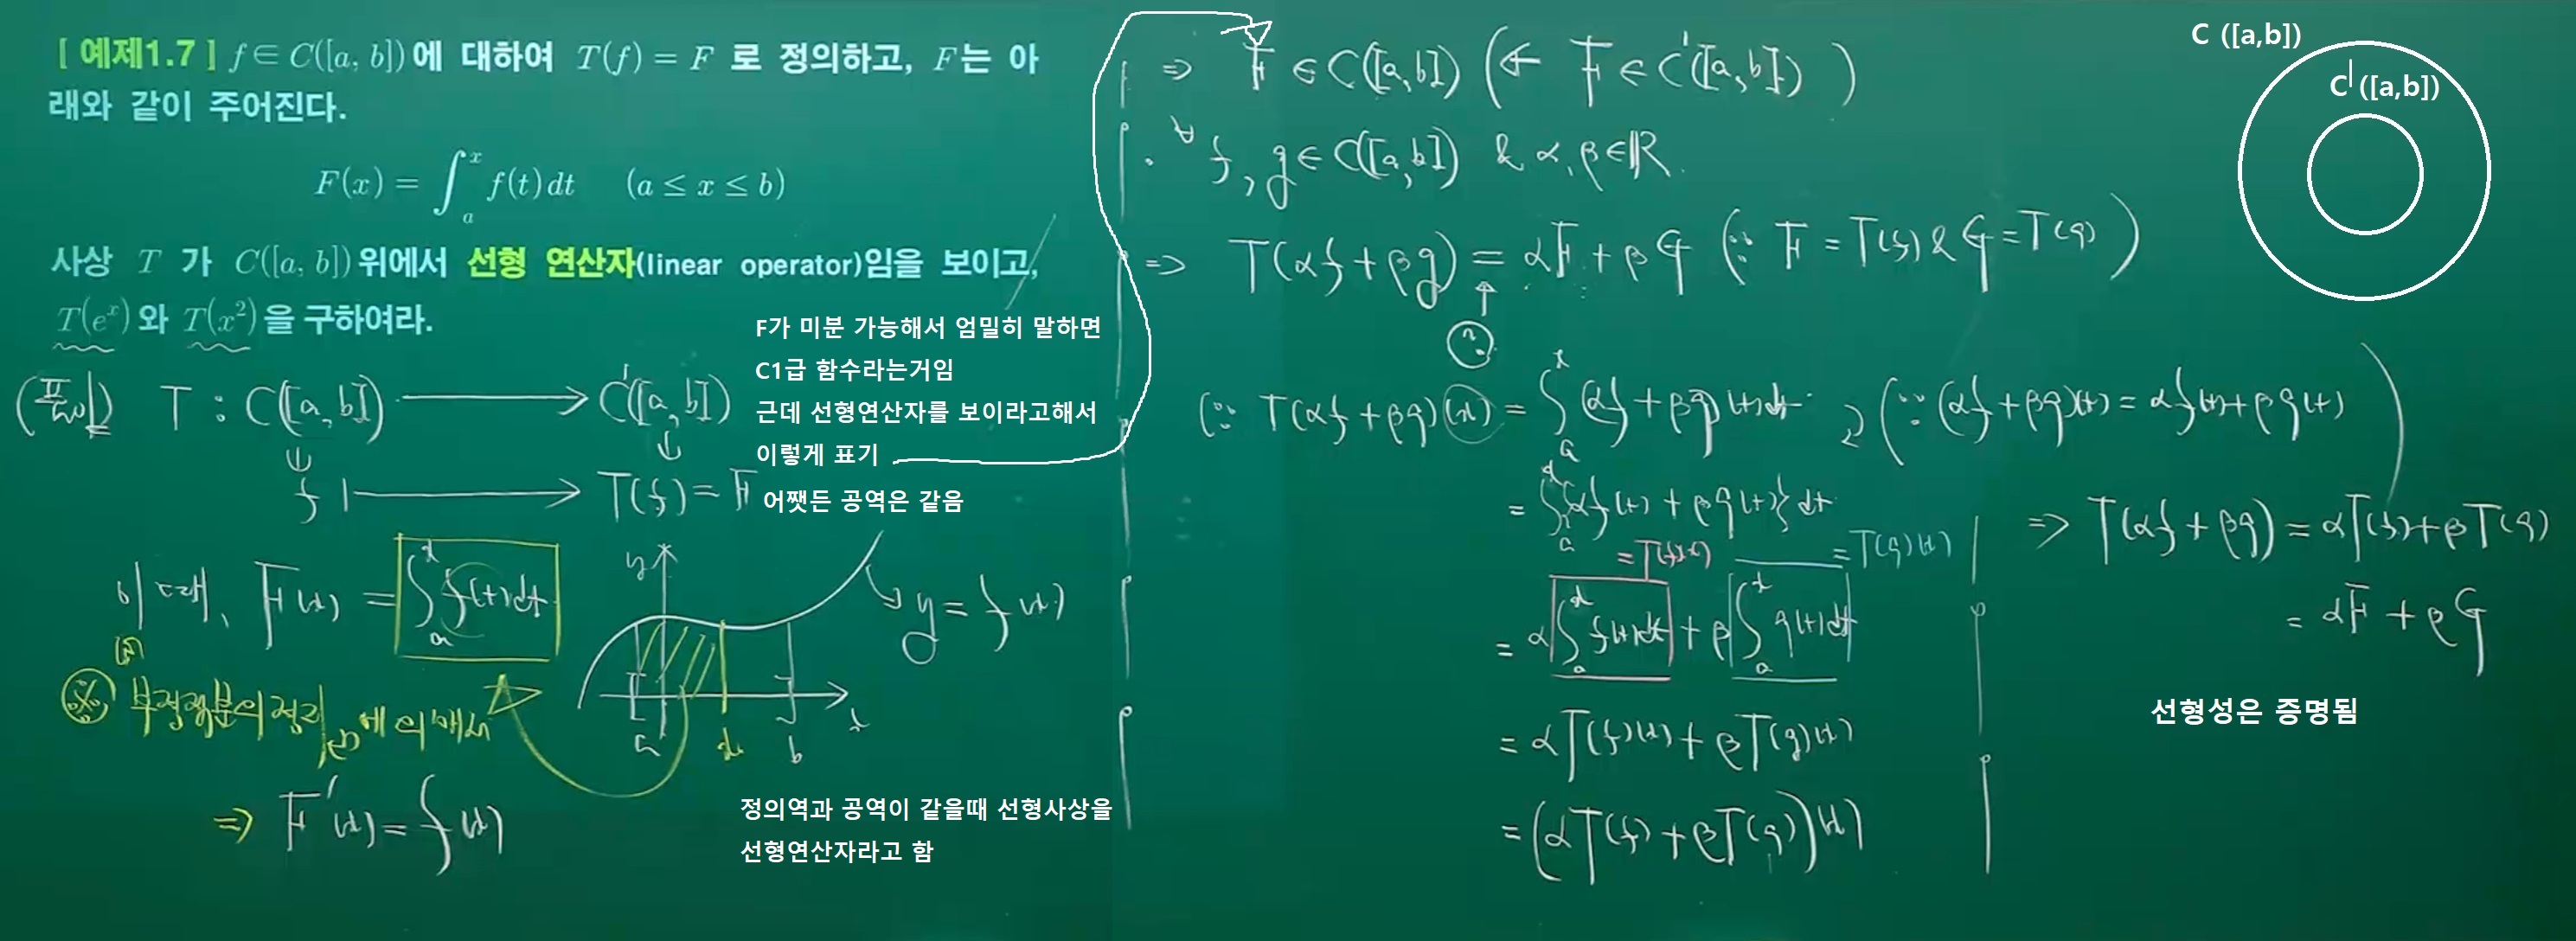 [ 예제1.7 ] f ∈ C([a, b])에 대하여 T(f) = F 로 정의하고, F는 아
래와 같이 주어진다.
F(x) = ∫_a^x f(t)dt (a ≤ x ≤ b)
사상 T 가 C([a, b])위에서 선형 연산자(linear operator)임을 보이고,
T(e^x)와 T(x^2)을 구하여라.
F가 미분 가능해서 엄밀히 말하면
C1급 함수라는거임
근데 선형연산자를 보이라고해서
이렇게 표기
어쨋든 공역은 같음
(풀이) T : C([a, b]) → C'([a, b])
f ↦ T(f) = F
이때, F(x) = ∫_a^x f(t)dt
y
y = f(x)
a x b x
※ 부정적분의 정리에 의해서
⇒ F'(x) = f(x)
정의역과 공역이 같을때 선형사상을
선형연산자라고 함
⇒ F ∈ C([a, b]) (⇐ F ∈ C'([a, b]))
· ∀f, g ∈ C([a, b]) & α, β ∈ ℝ.
⇒ T(αf + βg) = αF + βG (∵ F = T(f) & G = T(g))
↑
?
(∵ T(αf + βg)(x) = ∫_a^x (αf + βg)(t)dt (∵ (αf + βg)(t) = αf(t) + βg(t))
= ∫_a^x {αf(t) + βg(t)}dt
= T(f)(x) = T(g)(x)
= α ∫_a^x f(t)dt + β ∫_a^x g(t)dt
= αT(f)(x) + βT(g)(x)
= (αT(f) + βT(g))(x)
⇒ T(αf + βg) = αT(f) + βT(g)
= αF + βG
선형성은 증명됨
C ([a,b])
C' ([a,b])